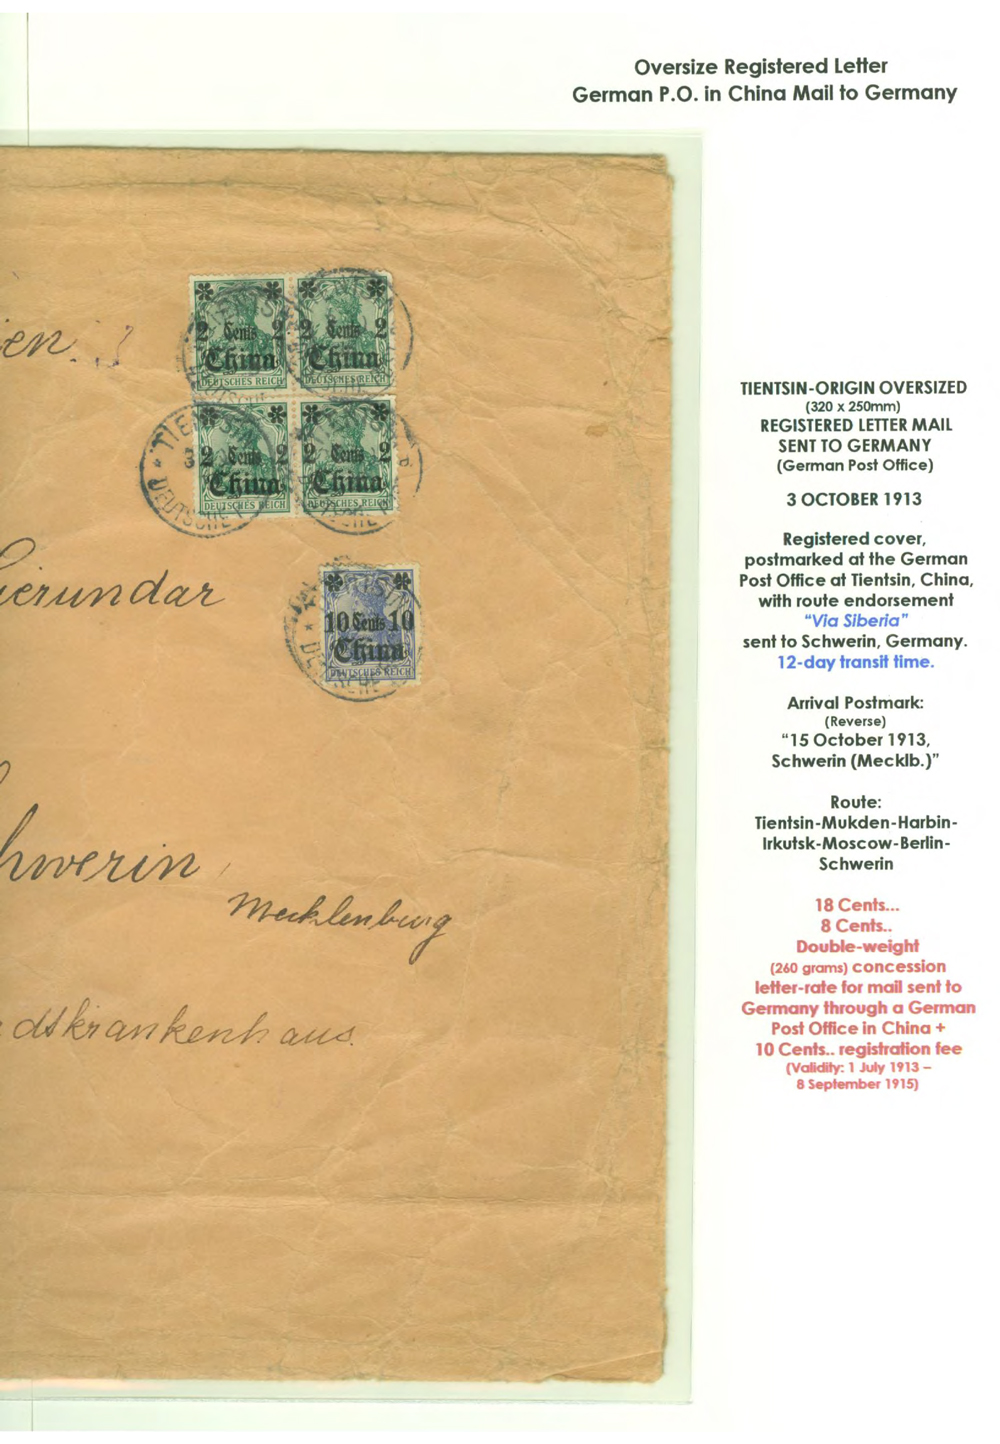 Oversize Registered Letter
German P.O. in China Mail to Germany
TIENTSIN
2 Cents 2
China
DEUTSCHES REICH
2 Cents 2
China
DEUTSCHES REICH
TIENTSIN
2 Cents 2
China
DEUTSCHES REICH
2 Cents 2
China
DEUTSCHES REICH
10 Cents 10
China
DEUTSCHES REICH
Mecklenburg
TIENTSIN-ORIGIN OVERSIZED
(320 x 250mm)
REGISTERED LETTER MAIL
SENT TO GERMANY
(German Post Office)
3 OCTOBER 1913
Registered cover,
postmarked at the German
Post Office at Tientsin, China,
with route endorsement
“Via Siberia”
sent to Schwerin, Germany.
12-day transit time.
Arrival Postmark:
(Reverse)
“15 October 1913,
Schwerin (Mecklb.)”
Route:
Tientsin-Mukden-Harbin-
Irkutsk-Moscow-Berlin-
Schwerin
18 Cents...
8 Cents..
Double-weight
(260 grams) concession
letter-rate for mail sent to
Germany through a German
Post Office in China +
10 Cents.. registration fee
(Validity: 1 July 1913 –
8 September 1915)